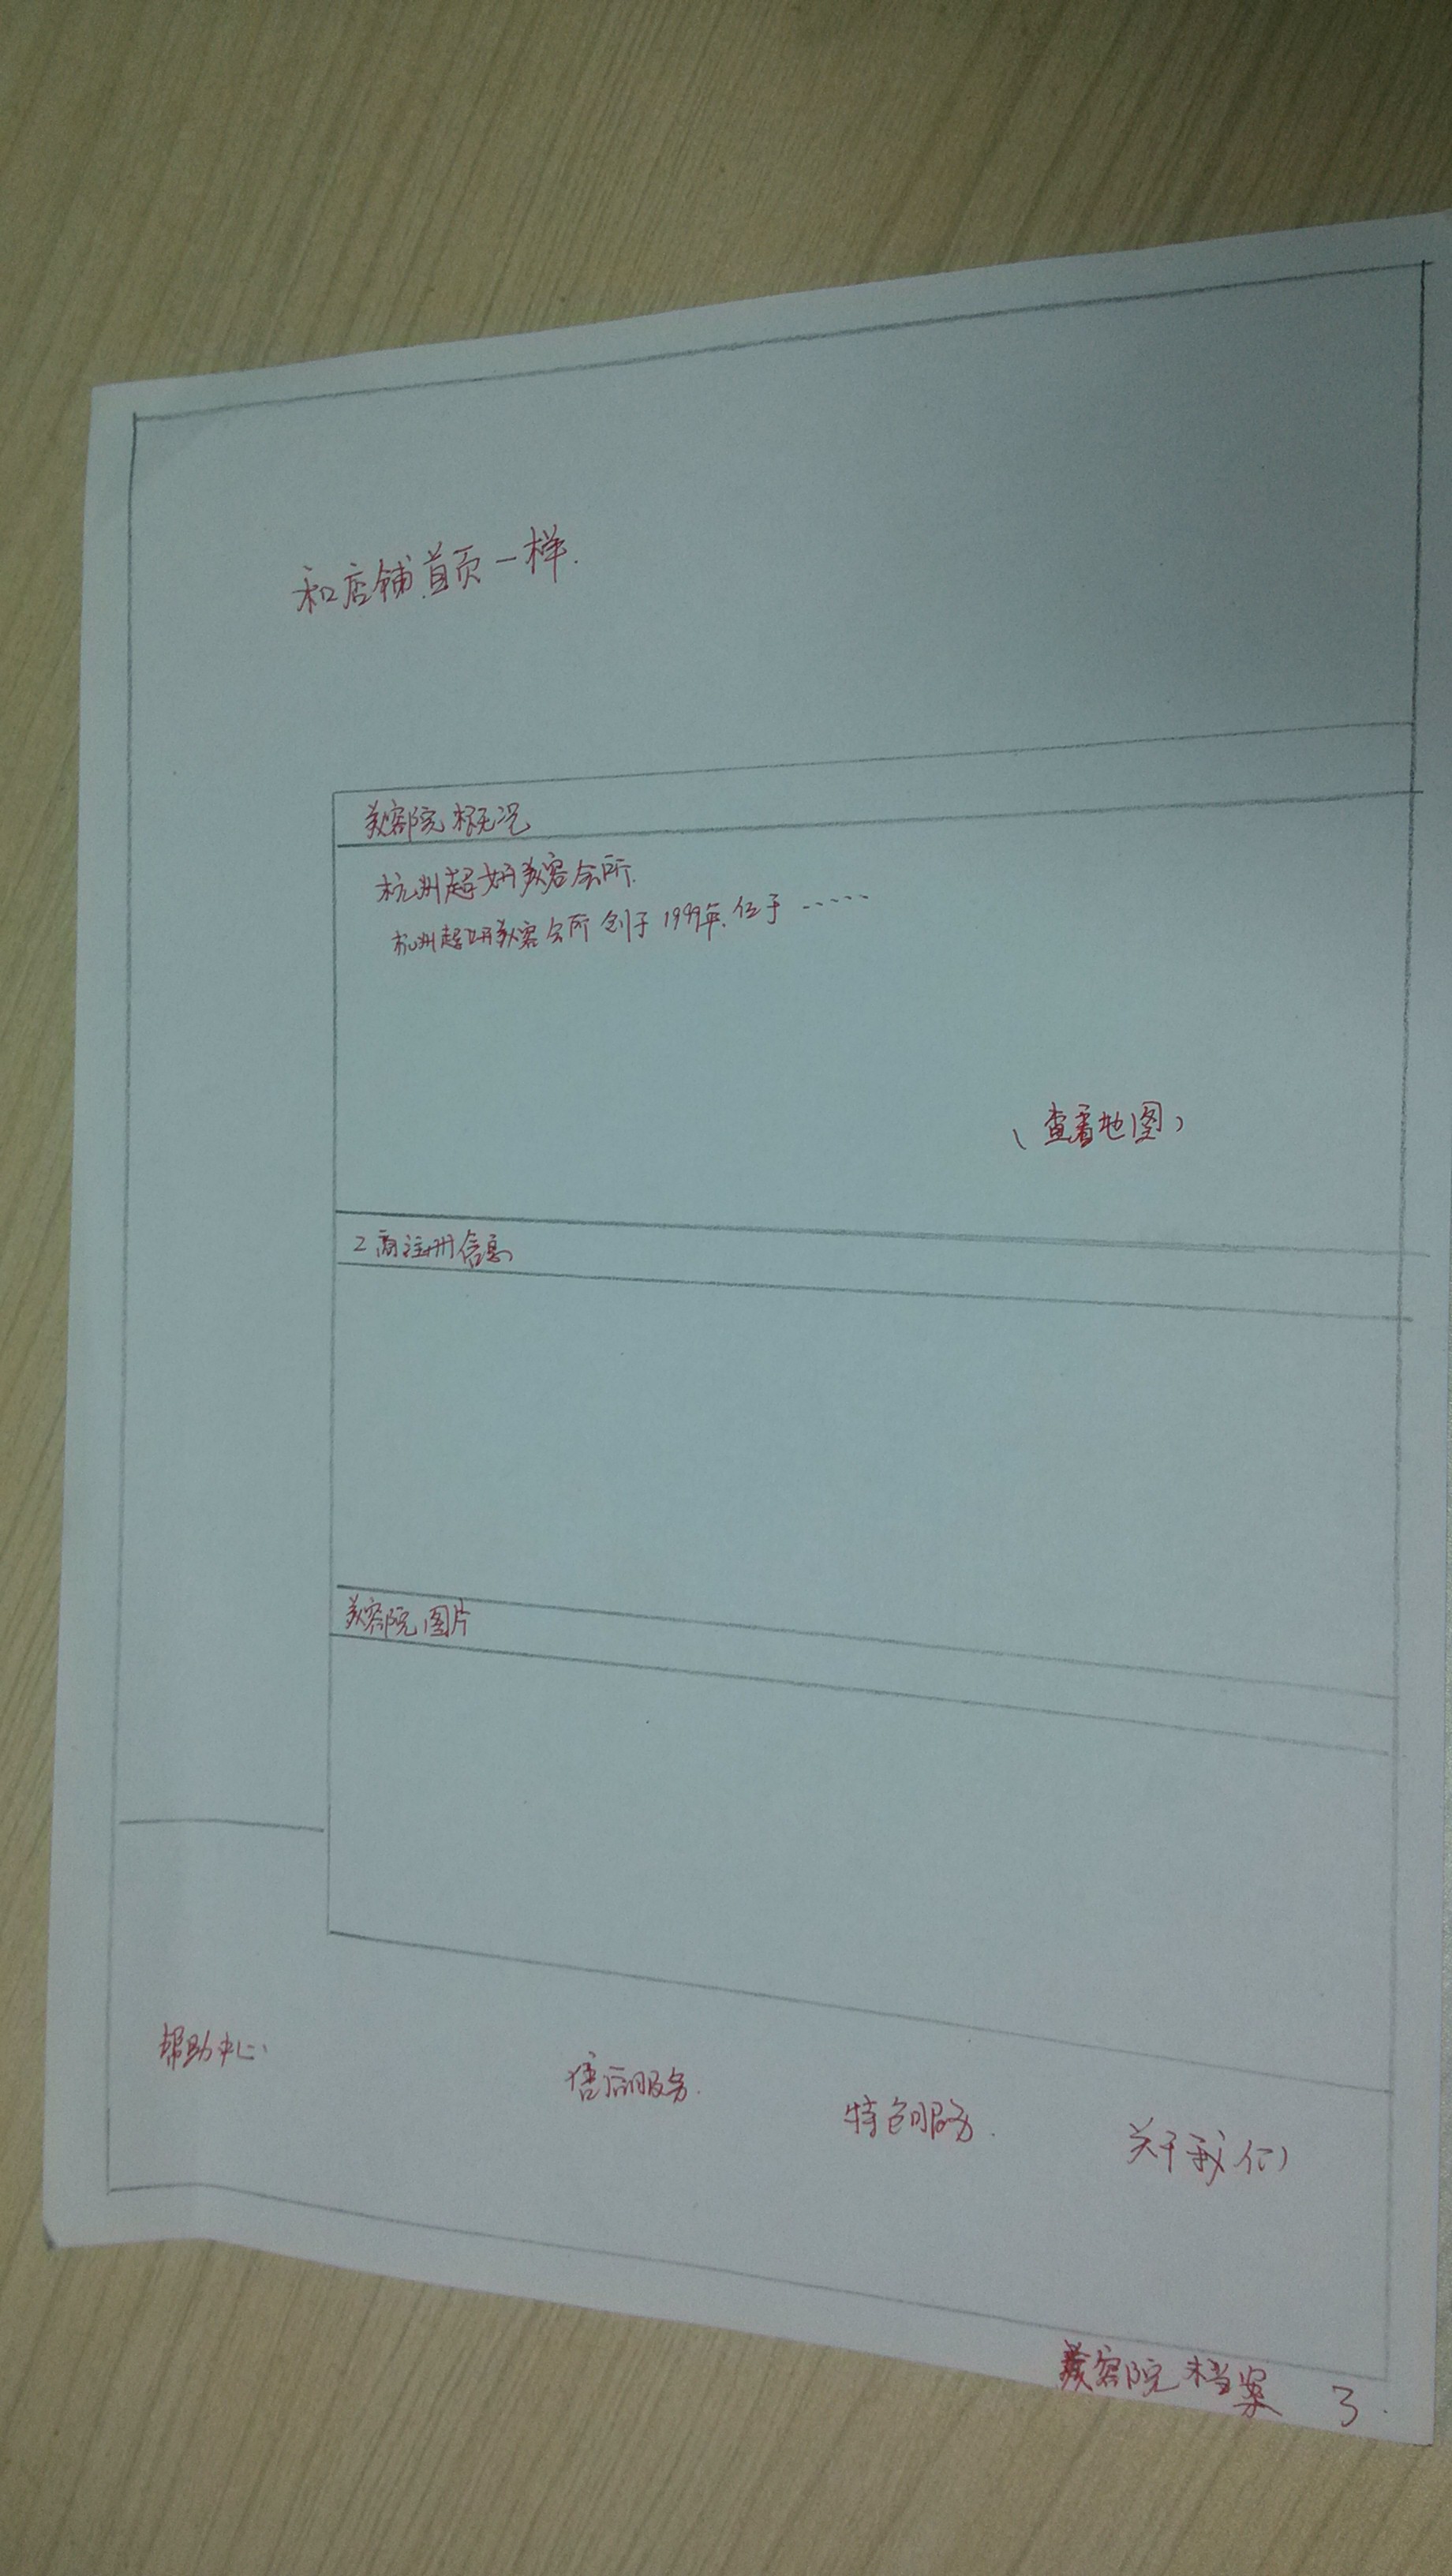 和店铺首页一样.
美容院概况
杭州超妍美容会所.
杭州超妍美容会所创于1999年.位于……
(查看地图)
工商注册信息
美容院图片
帮助中心.
售后服务.
特色服务.
关于我们
美容院档案 3.